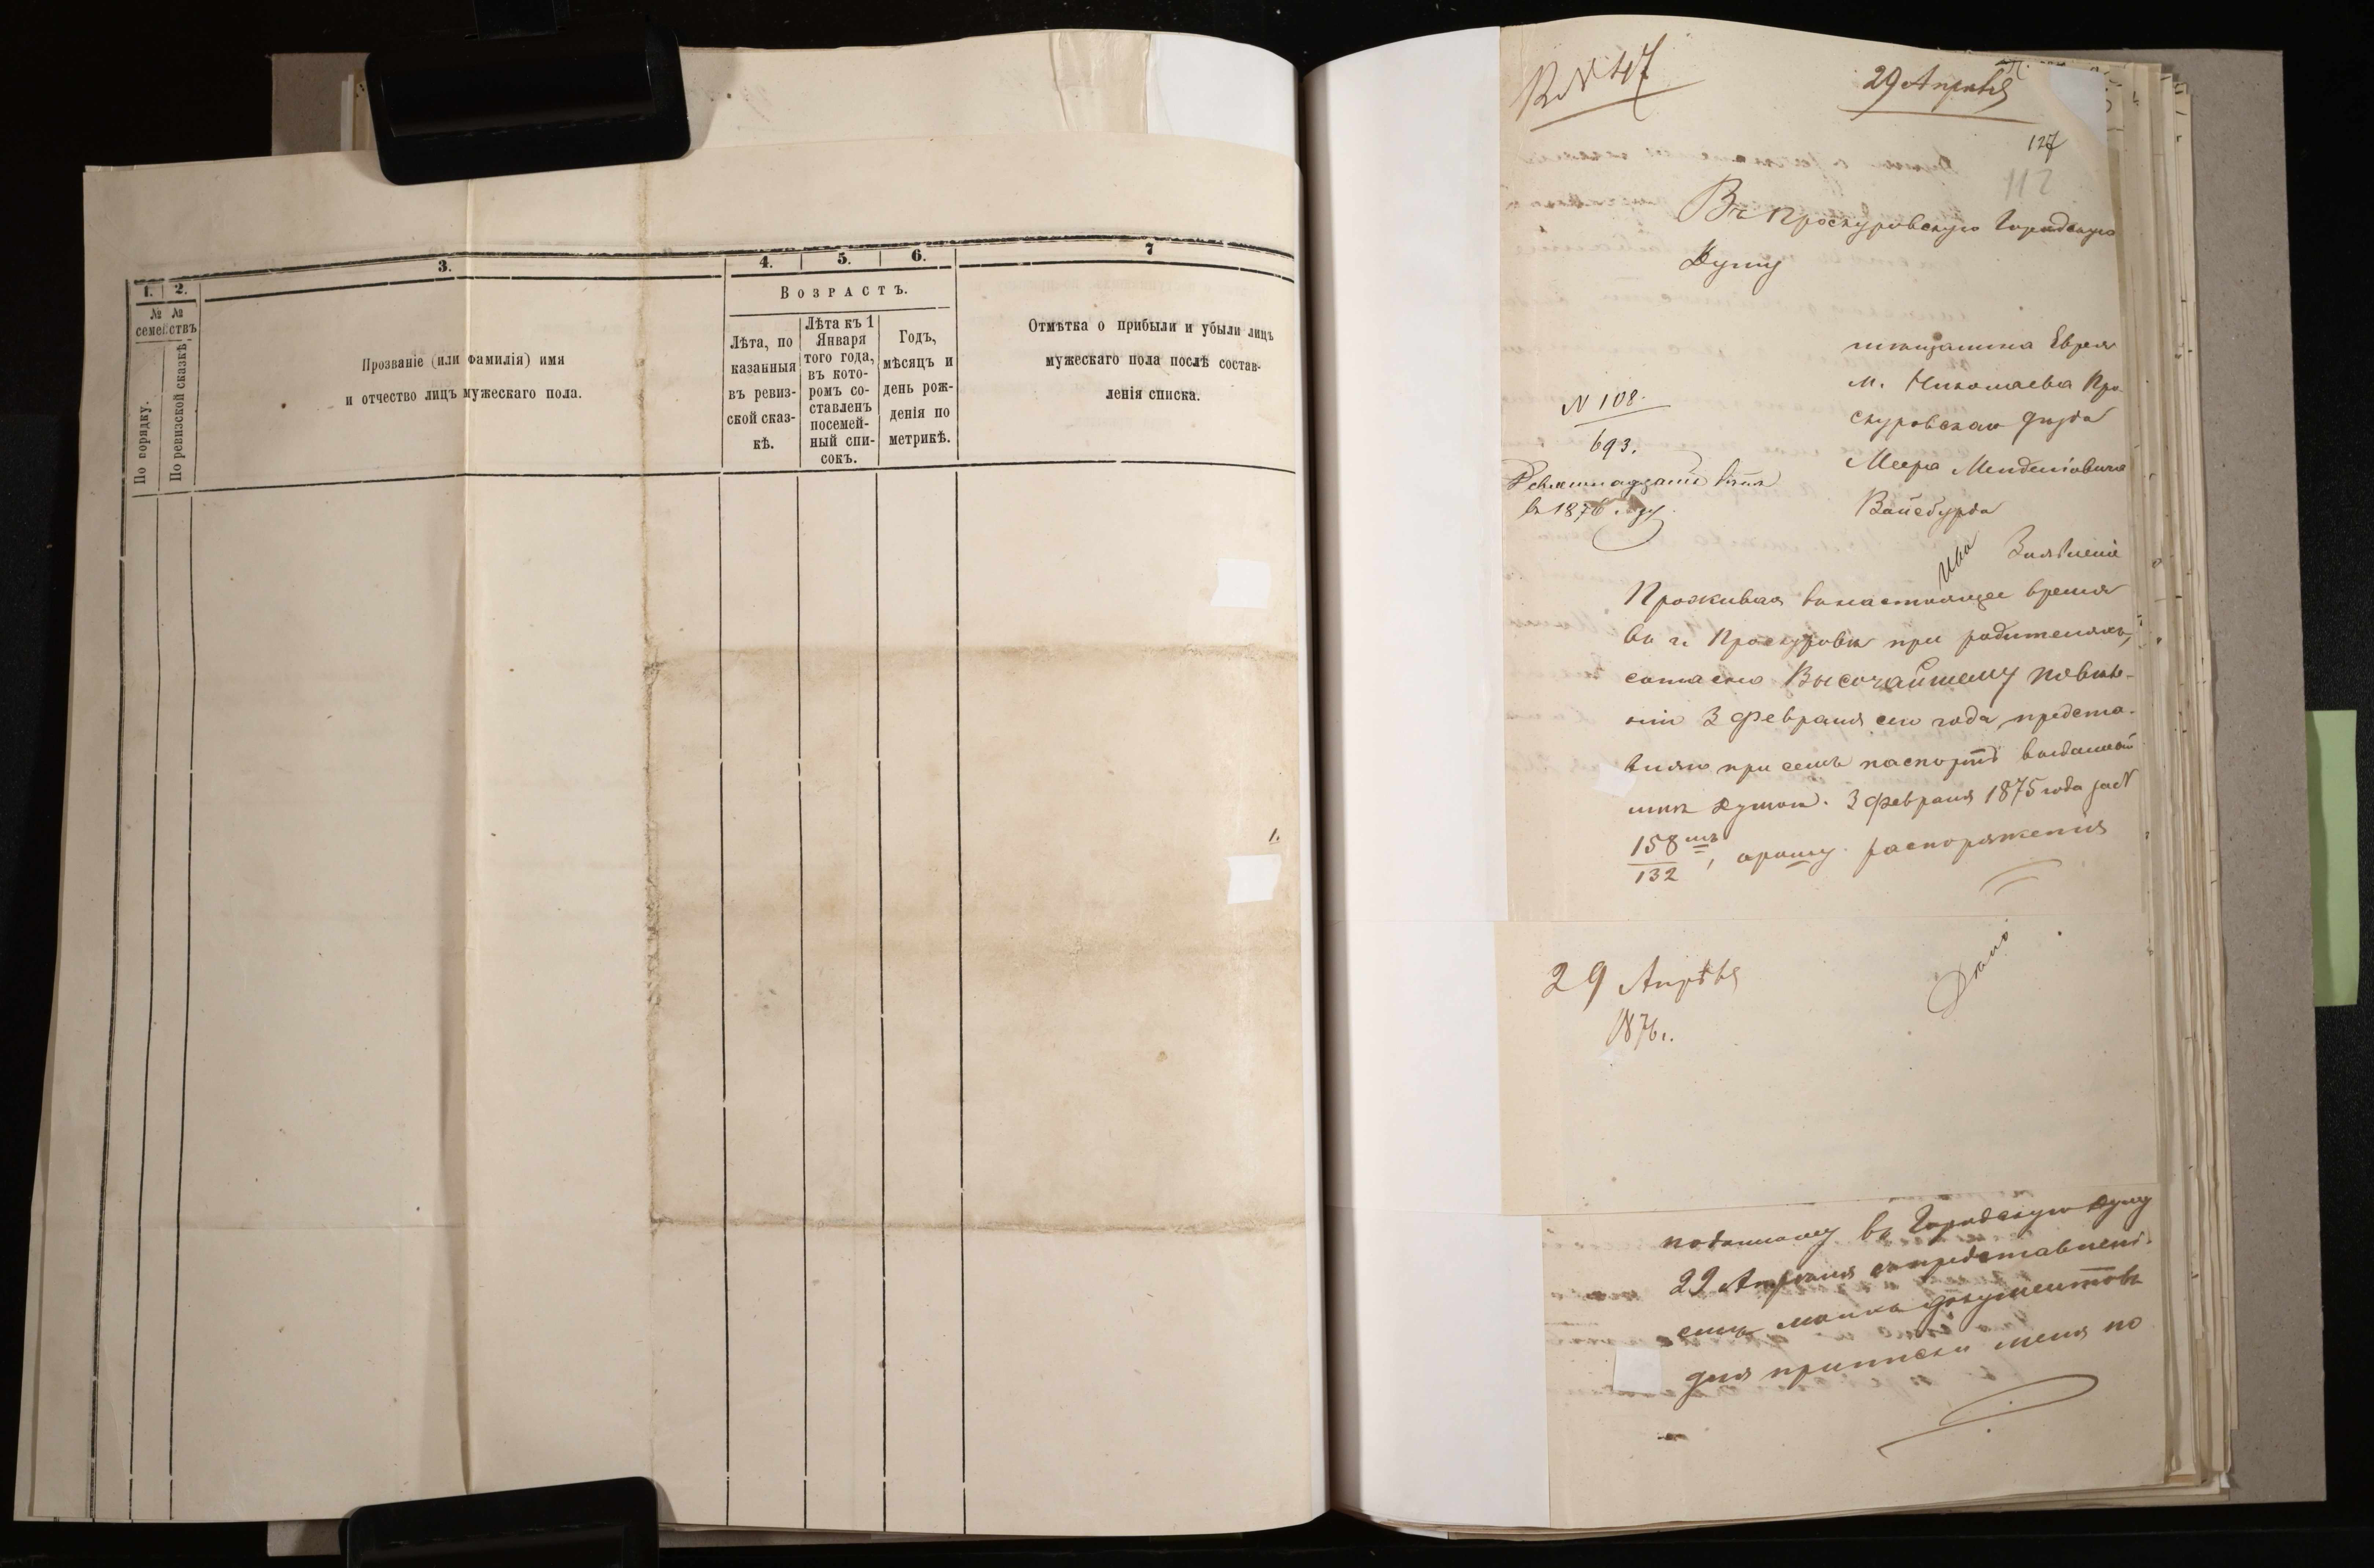 1. 2. 3. 4. 5. 6. 7
№ № семействъ
По порядку.
По ревизской сказкѣ
Прозваніе (или фамилія) имя
и отчество лицъ мужескаго пола.
Возрастъ.
Лѣта, по
казанныя
въ ревиз-
ской сказ-
кѣ.
Лѣта къ 1
Января
того года,
въ кото-
ромъ со-
ставленъ
посемей-
ный спи-
сокъ.
Годъ,
мѣсяцъ и
день рож-
денія по
метрикѣ.
Отмѣтка о прибыли и убыли лицъ
мужескаго пола послѣ состав-
ленія списка.
1.
29 Апрѣля
127
112
Въ Проскуровскую Городскую
Думу
мѣщанина Еврея
м. Николаева Про-
скуровскаго уѣзда
Меера Менделіовича
Вайсбурда
N 108.
693.
в 1876 году
Заявленіе
Проживая в настоящее время
въ г. Проскуровѣ при родителяхъ,
согласно Высочайшему повелѣ-
нію 3 Февраля сего года, предста-
вляю при семъ паспортъ выданный
мнѣ Думою 3 Февраля 1875 года за N
158
132 , прошу распоряженія
29 Апрѣля
1876 г.
Дѣло
поданному въ Городскую Думу
29 Апрѣля съ представлені-
емъ моихъ документовъ
для приписки меня по